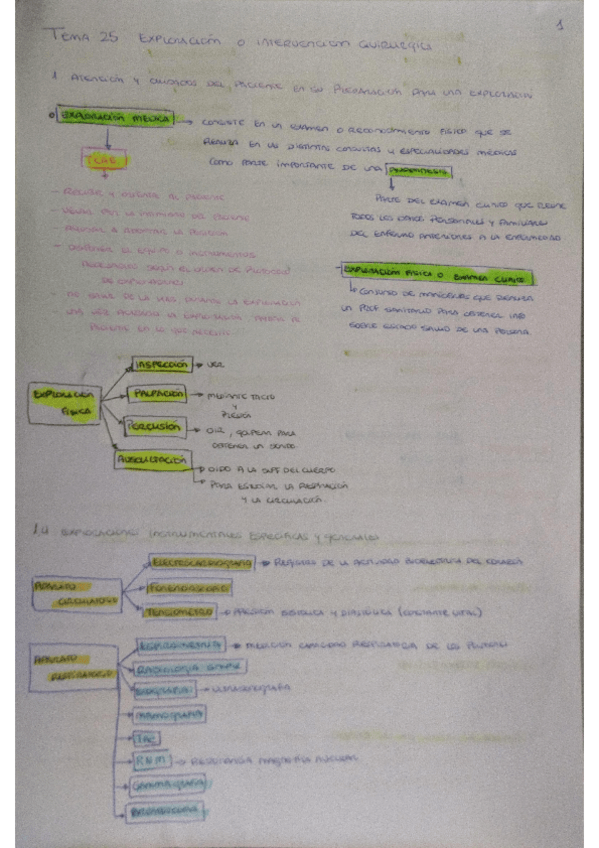 1
TEMA 25 EXPLORACIÓN O INTERVENCIÓN QUIRÚRGICA
1 ATENCIÓN Y CUIDADOS DEL PACIENTE EN SU PREPARACIÓN PARA UNA EXPLORACIÓN
EXPLORACIÓN MÉDICA → CONSISTE EN UN EXAMEN O RECONOCIMIENTO FÍSICO QUE SE
REALIZA EN LAS DISTINTAS CONSULTAS Y ESPECIALIDADES MÉDICAS
COMO PARTE IMPORTANTE DE UNA
TCAE
- RECIBIR Y AL PACIENTE
- POR LA DEL PACIENTE
- A ADOPTAR LA POSICIÓN
- EL EQUIPO O INSTRUMENTOS
SEGÚN EL ORDEN DE
DE EXPLORACIONES
- DE LA DURANTE LA EXPLORACIÓN
- UNA VEZ LA EXPLORACIÓN AL
PACIENTE EN LO QUE NECESITE
PARTE DEL EXAMEN CLÍNICO QUE REÚNE
TODOS LOS DATOS PERSONALES Y FAMILIARES
DEL ENFERMO ANTERIORES A LA ENFERMEDAD
- EXPLORACIÓN FÍSICA O EXAMEN CLÍNICO
CONJUNTO DE MANIOBRAS QUE REALIZA
UN PROF SANITARIO PARA OBTENER INFO
SOBRE ESTADO SALUD DE UNA PERSONA.
EXPLORACIÓN
FÍSICA
INSPECCIÓN → VER
PALPACIÓN → MEDIANTE TACTO
Y
PRESIÓN
PERCUSIÓN → OIR, GOLPEAR PARA
OBTENER UN SONIDO
AUSCULTACIÓN → OIDO A LA SUPF DEL CUERPO
→ PARA ESTUDIAR LA RESPIRACIÓN
Y LA CIRCULACIÓN
EXPLORACIONES INSTRUMENTALES ESPECÍFICAS Y GENERALES
APARATO
CIRCULATORIO
ELECTROCARDIOGRAFIA → REGISTRO DE LA ACTIVIDAD BIOELÉCTRICA DEL CORAZÓN
FONENDOSCOPIO
TENSIOMETRO → PRESIÓN SISTÓLICA Y DIASTÓLICA (CONSTANTE VITAL)
APARATO
RESPIRATORIO
ESPIROMETRÍA → MEDICIÓN CAPACIDAD RESPIRATORIA DE LOS PULMONES
RADIOLOGÍA SIMPLE
ECOGRAFÍA → ULTRASONOGRAFÍA
MAMOGRAFÍA
TAC
RNM → RESONANCIA MAGNÉTICA NUCLEAR
GAMMAGRAFÍA